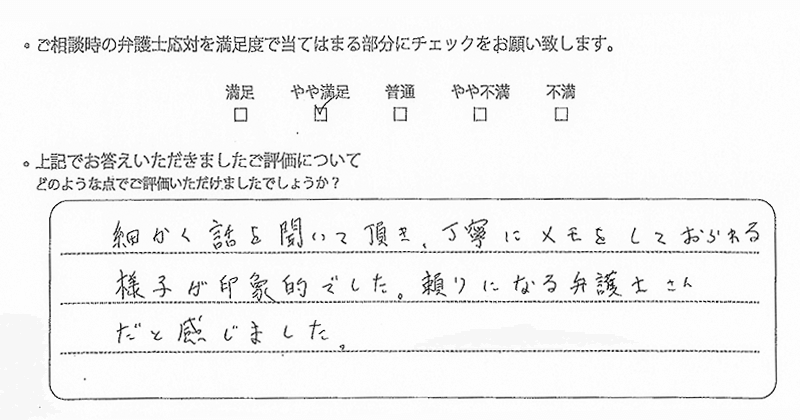 。ご相談時の弁護士応対を満足度で当てはまる部分にチェックをお願い致します。
満足 やや満足 普通 やや不満 不満
□ ☑ □ □ □
。上記でお答えいただきましたご評価について
どのような点でご評価いただけましたでしょうか？
細かく話を聞いて頂き、丁寧にメモをしておられる
様子が印象的でした。頼りになる弁護士さん
だと感じました。